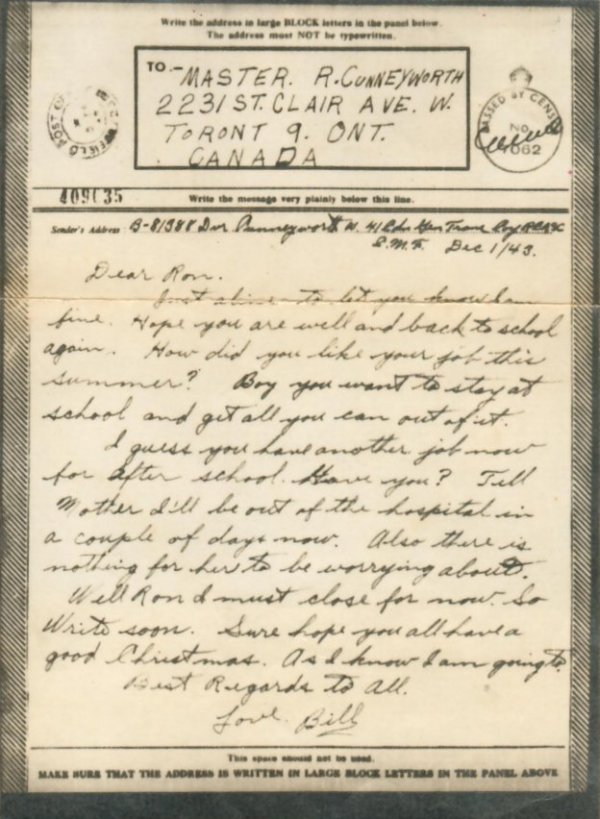 Write the address in large BLOCK letters in the panel below.
The address must NOT be typewritten.
TO.-
MASTER. R. CUNNEYWORTH
2231 ST. CLAIR AVE. W.
TORONT 9. ONT.
CANADA
FIELD POST
PASSED BY CENS
No.
062
409035
Write the message very plainly below this line.
Sender's Address B-81988 Dvr Cunneyworth W. 41 Coy
C.M.F. Dec 1/43.
Dear Ron.
Just a line to let you know I am
fine. Hope you are well and back to school
again. How did you like your job this
summer? Boy you want to stay at
school and get all you can out of it.
I guess you have another job now
for after school. Have you? Tell
Mother I'll be out of the hospital in
a couple of days now. Also there is
nothing for her to be worrying about.
Well Ron I must close for now. So
Write soon. Sure hope you all have a
good Christmas. As I know I am going to.
Best Regards to All.
Love Bill
This space should not be used.
MAKE SURE THAT THE ADDRESS IS WRITTEN IN LARGE BLOCK LETTERS IN THE PANEL ABOVE